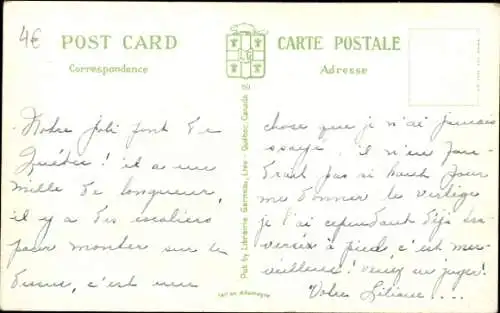 4€
POST CARD
Correspondence
CARTE POSTALE
Adresse
Notre joli pont de
Québec! il a une
mille de longueur,
il y a des escaliers
pour monter sur le
c'est une
chose que je n'ai jamais
essayé. il n'en fau-
drait pas si haut pour
me donner le vertige
je l'ai cependant déjà tra-
versé à pied, c'est mer-
veilleux! venez en juger!
Votre Liliane ...
Pub by Librairie Garneau, Ltée - Québec, Canada
Fait en Allemagne